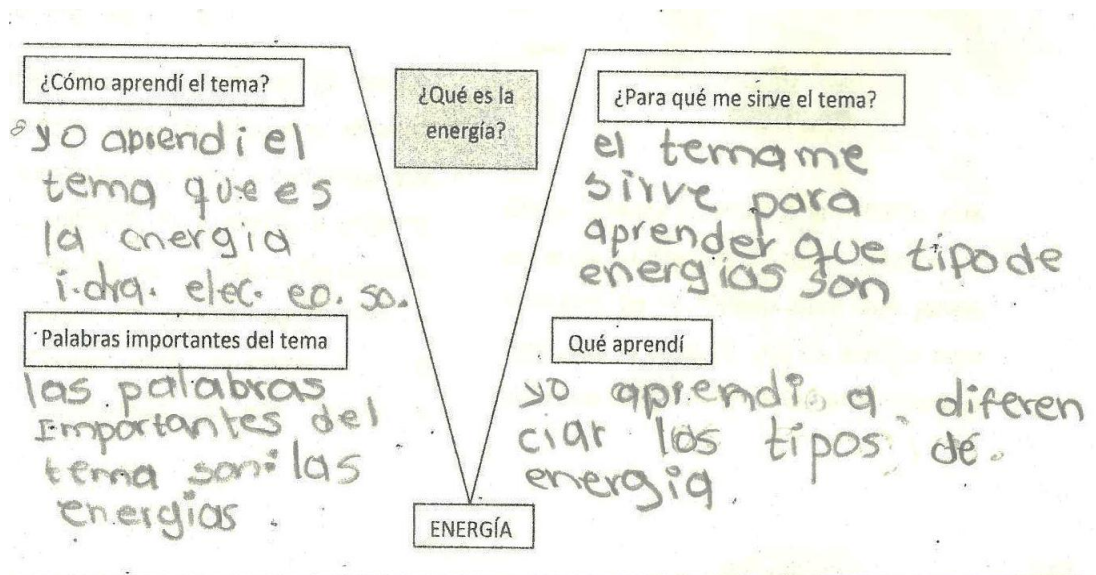 ¿Cómo aprendí el tema?
yo aprendi el
tema que es
la energia
i.dra. elec. eo. so.
Palabras importantes del tema
las palabras
importantes del
tema son: las
energias.
¿Qué es la
energía?
ENERGÍA
¿Para qué me sirve el tema?
el tema me
sirve para
aprender que tipo de
energias son
Qué aprendí
yo aprendi a diferen
ciar los tipos de
energia.